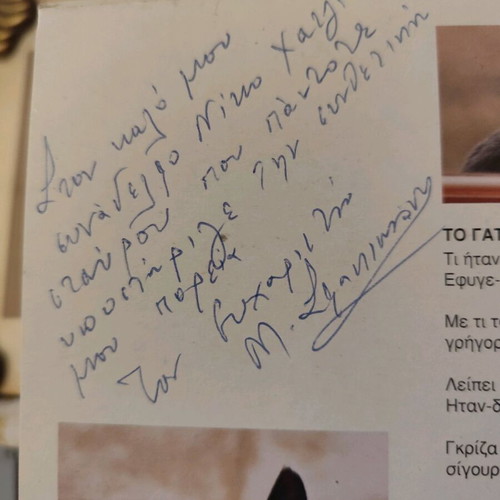 Στον καλό μου
συνάδελφο Νίκο Χατζη
σταύρου που πάντοτε
υποστήριζε την συνθετική
μου πορεία
Τον ευχαριστώ
Μ.
ΤΟ ΓΑΤ
Τι ήταν
Εφυγε-
Με τι το
γρήγορ
Λείπει
Ηταν-δ
Γκρίζα
σίγουρ